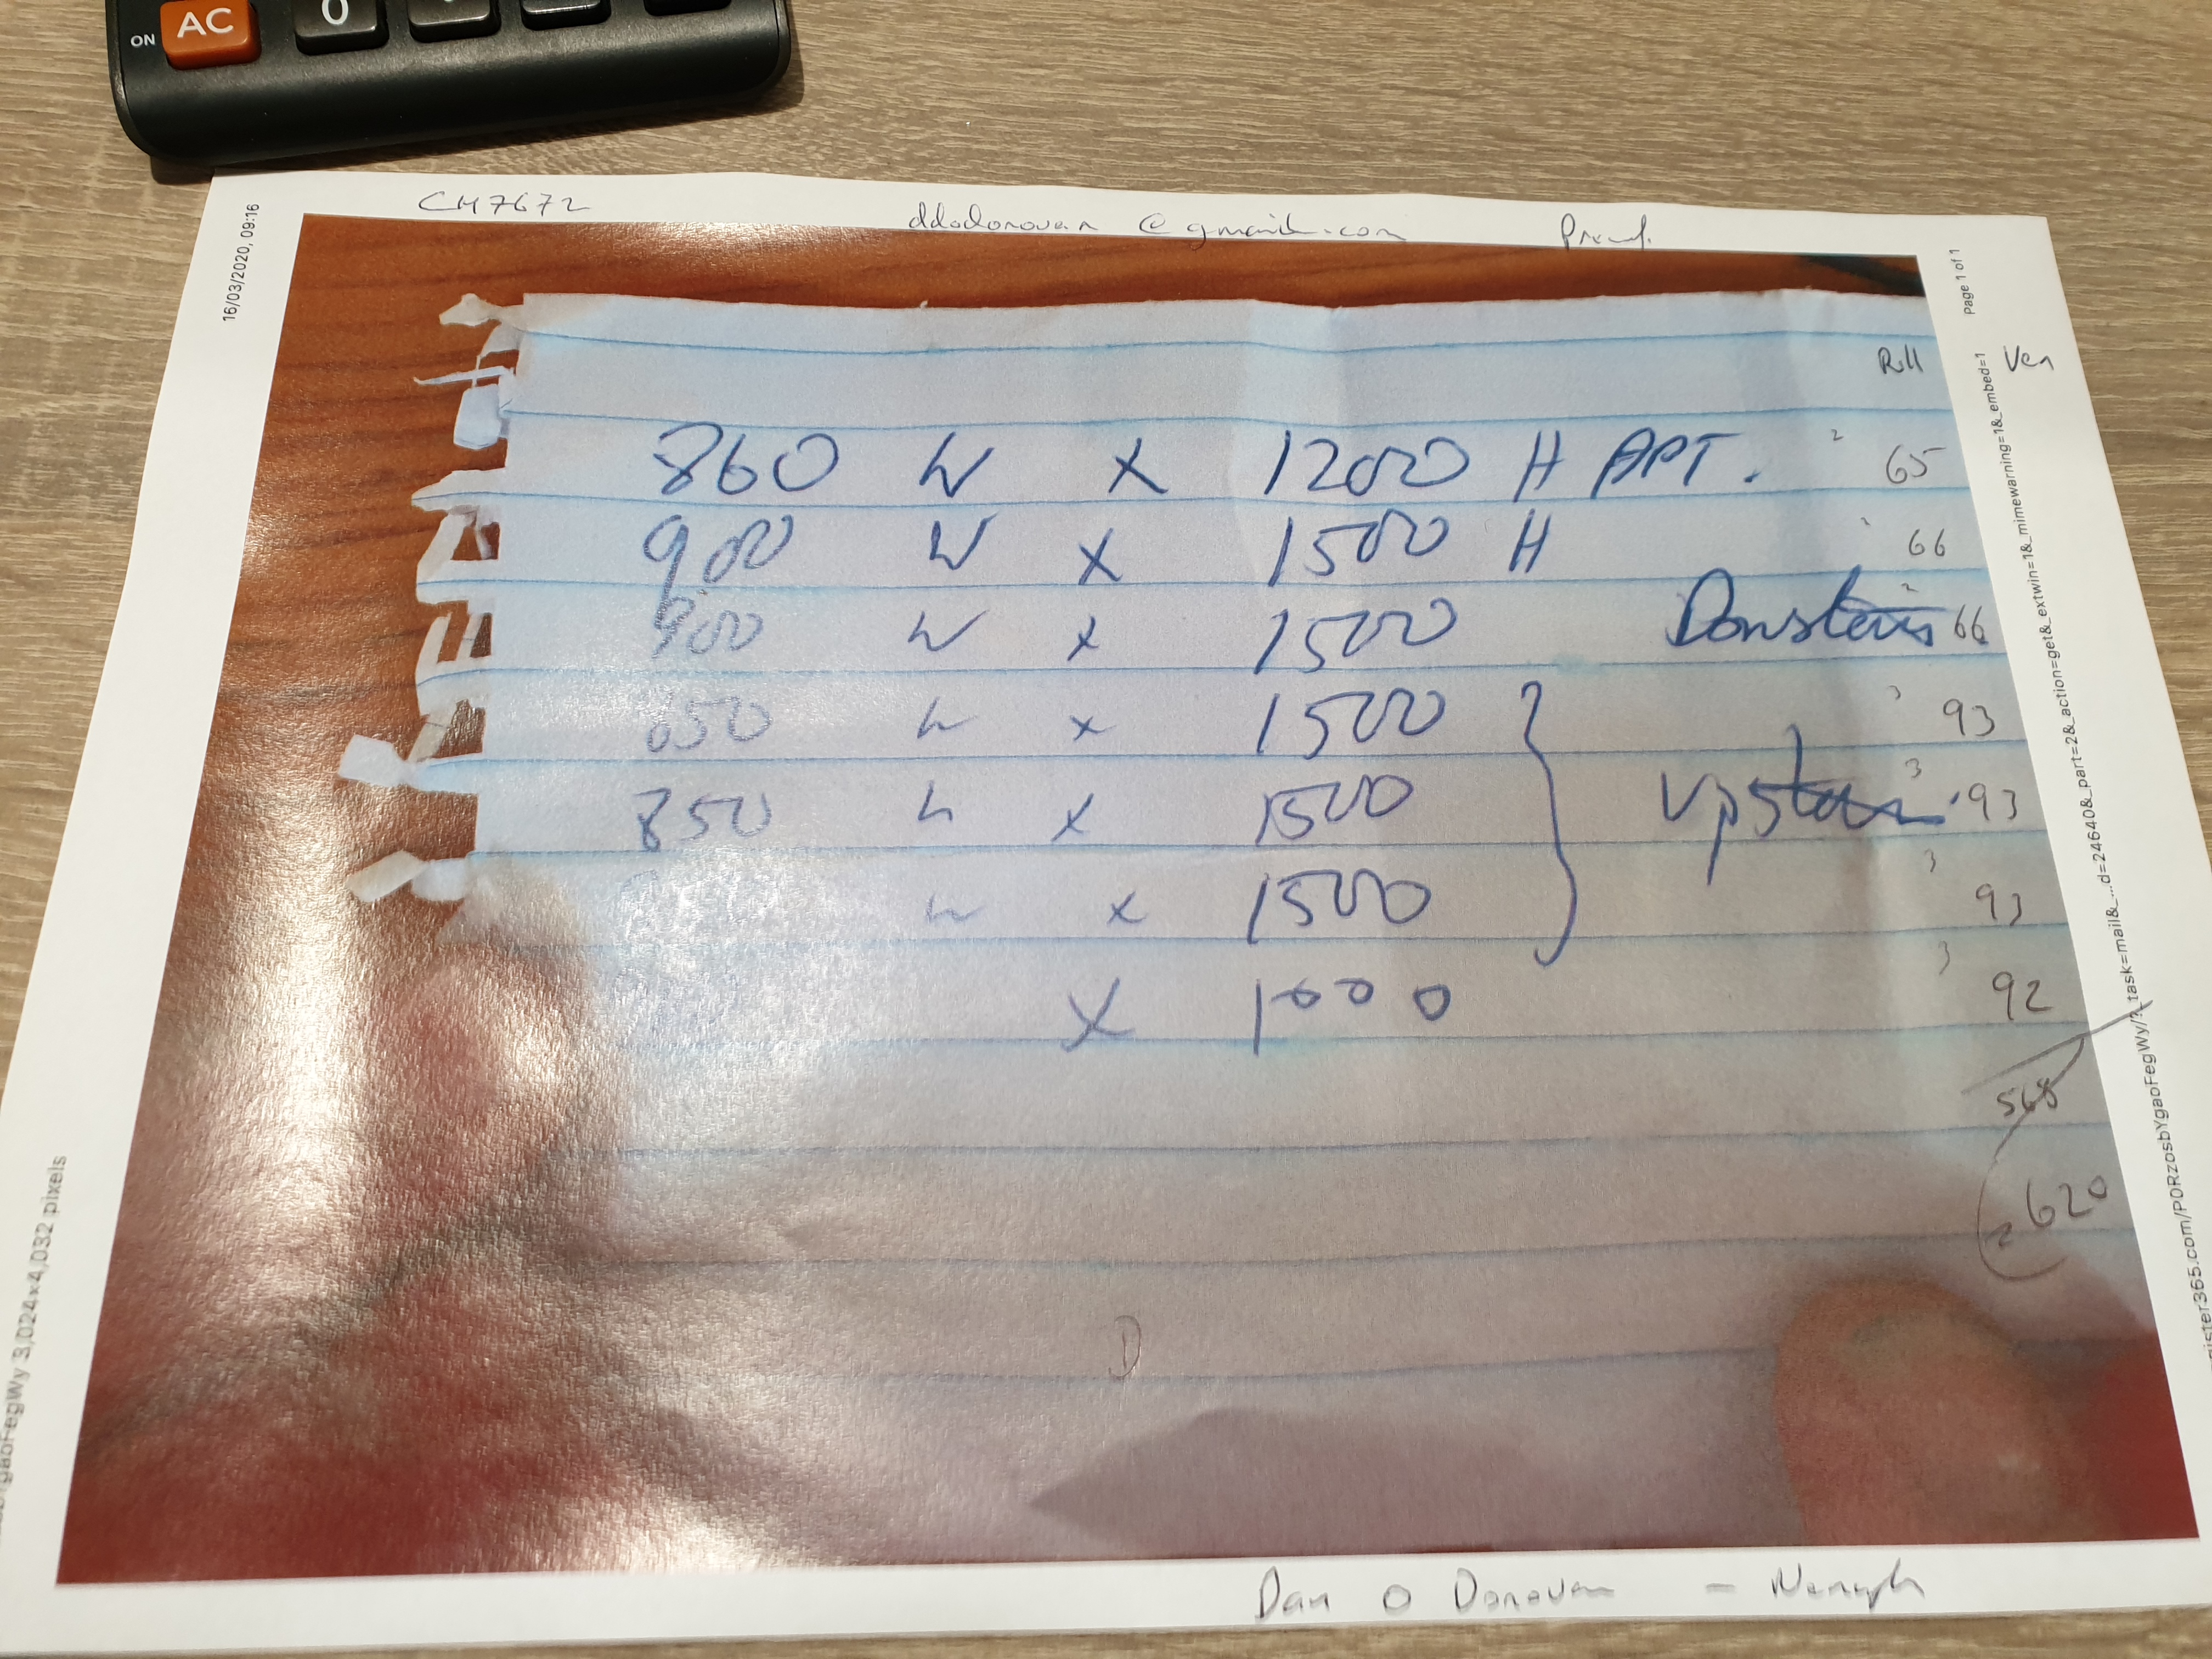 ON AC 0
CH7672
ddodonovan @gmail.com
16/03/2020, 09:16
Page 1 of 1
Roll Ven
860 W X 1200 H APT. 2 65
900 W X 1500 H 66
900 W X 1500 Downstairs 66
850 W X 1500 3 93
850 W X 1500 Upstairs 3 93
W X 1500 3 93
X 1000 3 92
568
620
D
Dan O Donovan - Nenagh
gaoFegWy 3,024×4,032 pixels
ister365.com/P0RzosbYgaoFegWy/?_task=mail&_...d=24640&_part=2&_action=get&_extwin=1&_mimewarning=1&_embed=1